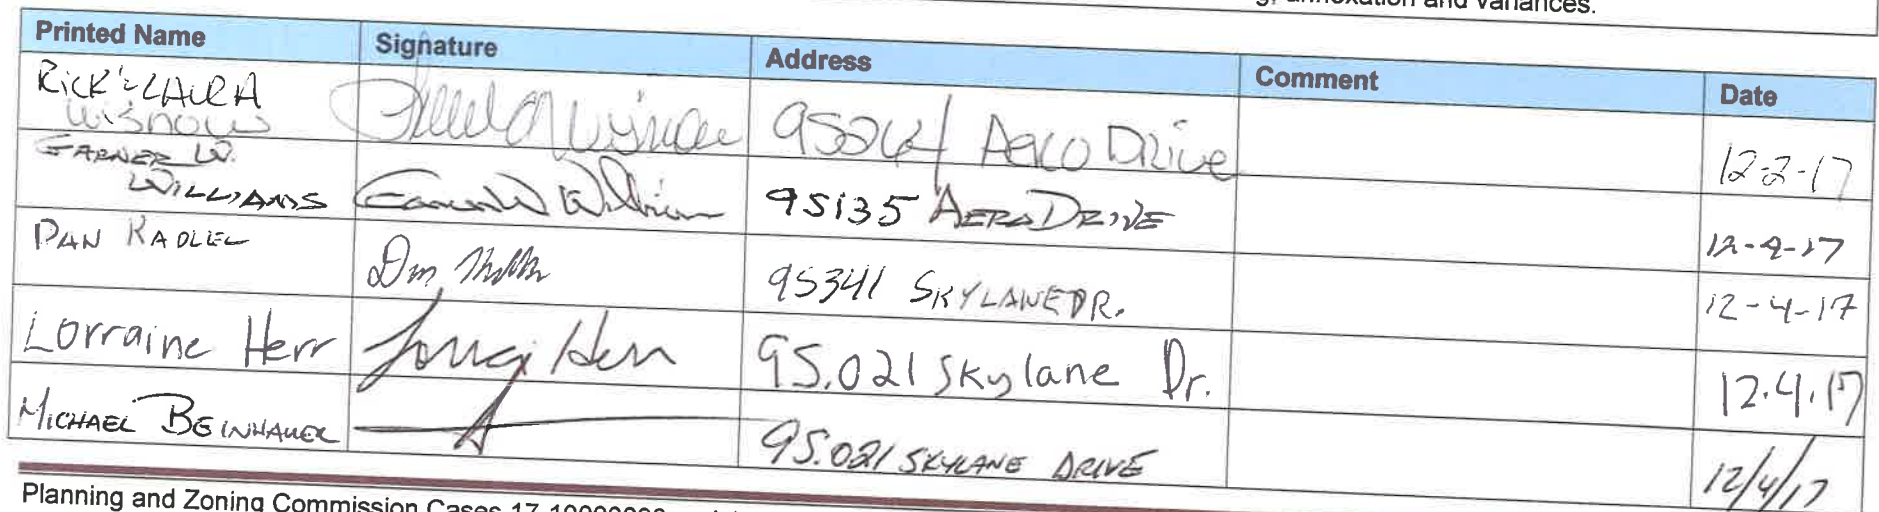 annexation and variances.
Printed Name Signature Address Comment Date
RICK & LAURA
Wisnows 95264 AERO DRIVE 12-2-17
GARNER W.
WILLIAMS 95135 AERO DRIVE 12-4-17
DAN KADLEC 95341 SKYLANE DR. 12-4-17
Lorraine Herr 95.021 Skylane Dr. 12.4.17
MICHAEL BEINHAUER 95.021 SKYLANE DRIVE 12/4/17
Planning and Zoning Commission Cases